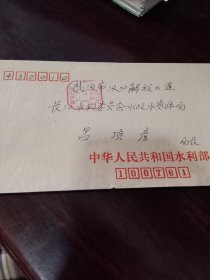 430010
武汉市汉口解放大道
长江水利委员会水政水资源局
吕 局长
中华人民共和国水利部
100761